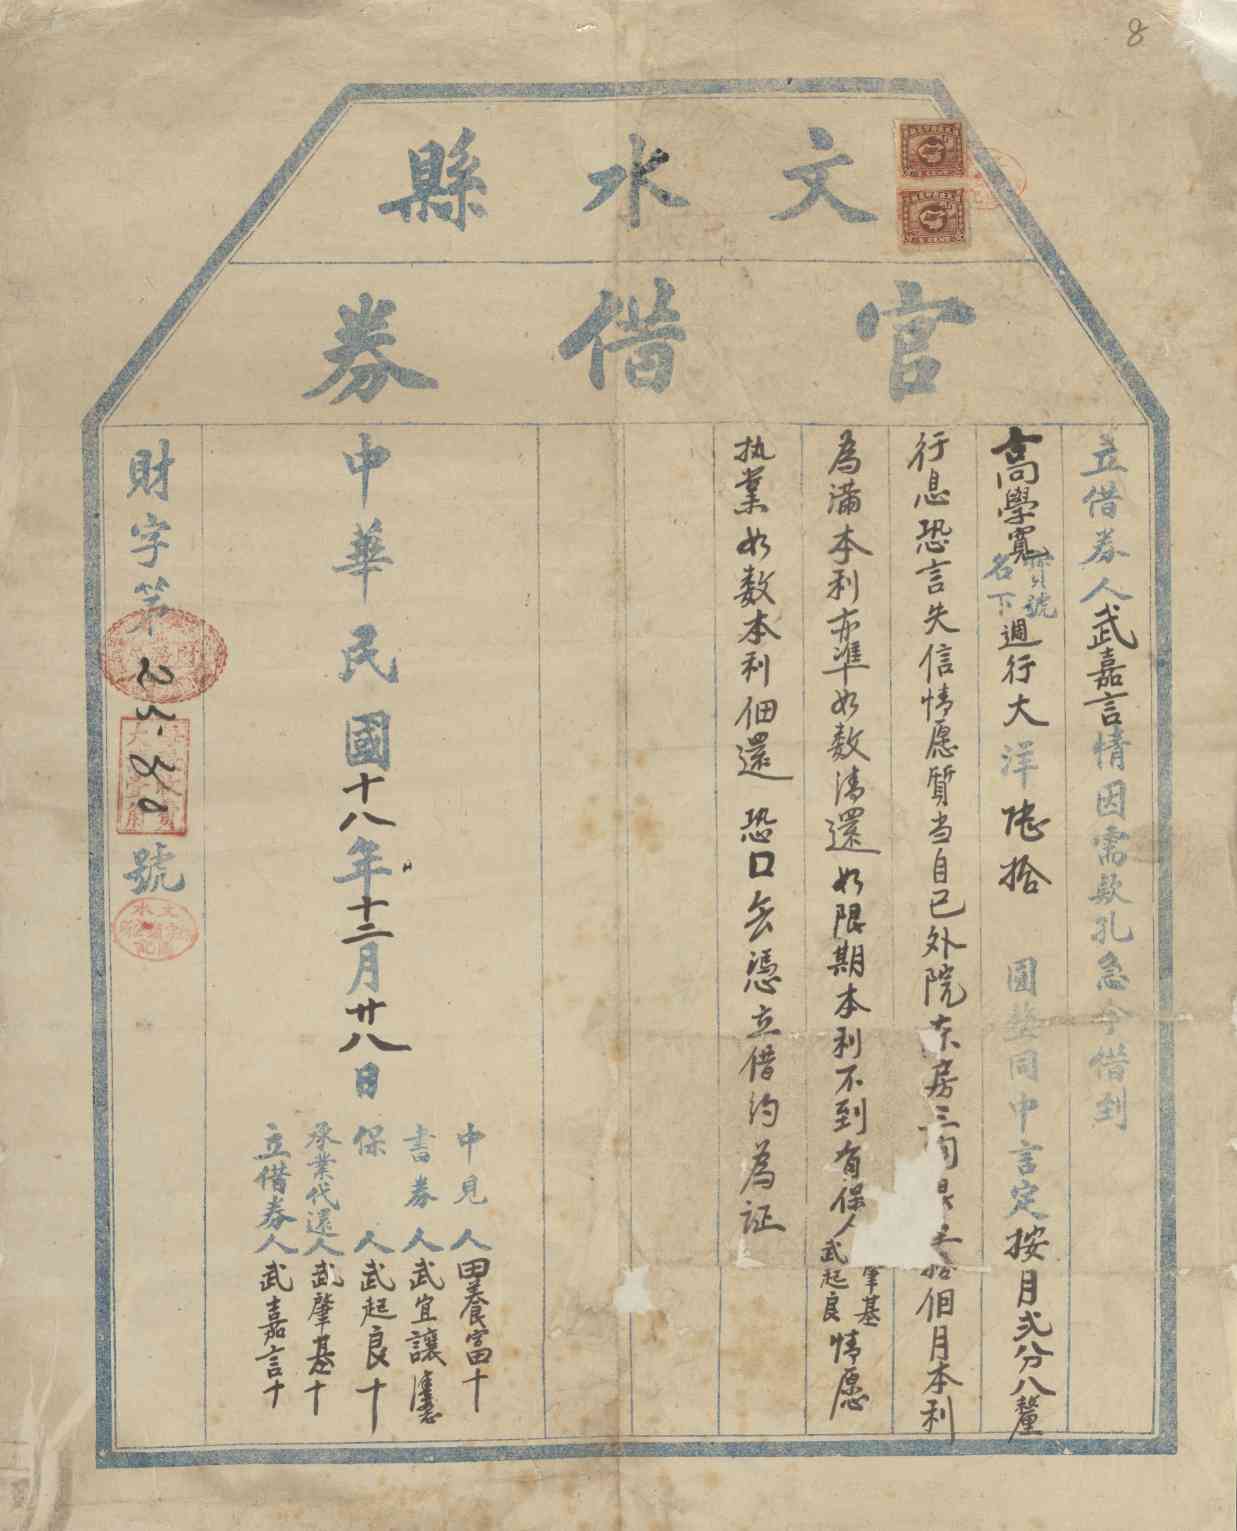 8
文水縣
官借券
立借券人武嘉言情因需款孔急今借到
高學寬寶號名下週行大洋陸拾圓整同中言定按月弍分八釐
行息恐言失信情愿質当自己外院东房三间限至拾個月本利
為满本利亦準如数清還如限期本利不到有保人肇基武起良情愿
执業如数本利佃還恐口無憑立借约為证
中見人田養富十
書券人武宜讓
保人武起良十
承業代還人武肇基十
立借券人武嘉言十
中華民國十八年十二月廿八日
財字第號